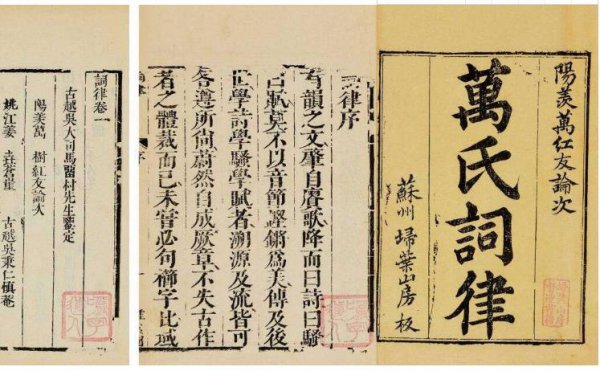 陽羨萬紅友論次
萬氏詞律
蘇州 埽葉山房 板
詞律序
有韻之文肇自賡歌降而曰詩曰騷
曰賦莫不以音節鏗鏘爲美傳及後
世學詩學騷學賦者溯源及流皆可
各遵所尚蔚然自成厥章不失古作
者之體裁而已未嘗必句櫛字比域
詞律卷一
古越吳大司馬留村先生鑒定
陽羨萬 樹紅友論次
姚江姜 垚蒼崖 古越吳秉仁慎菴